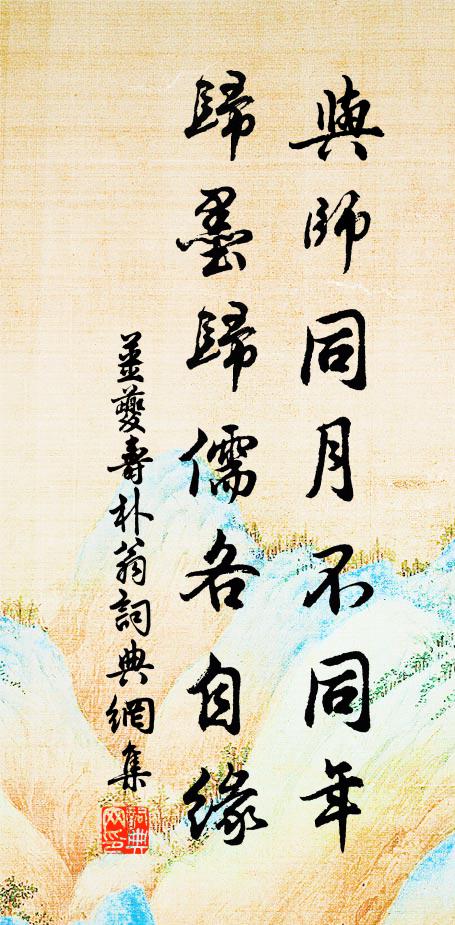 與師同月不同年
歸墨歸儒各自緣
姜夔壽朴翁詞典網集
詞典網印